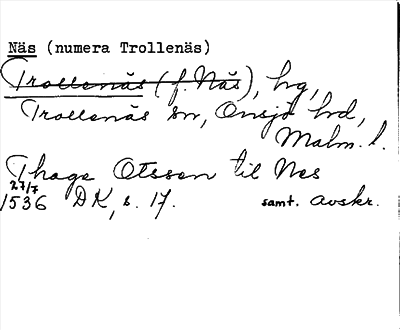 Näs (numera Trollenäs)
Trollenäs (f. Näs), hrg,
Trollenäs sn, Onsjö hrd,
Malm. l.
Thage Otssen til Nes
27/7
1536 DK, s. 17. samt. avskr.